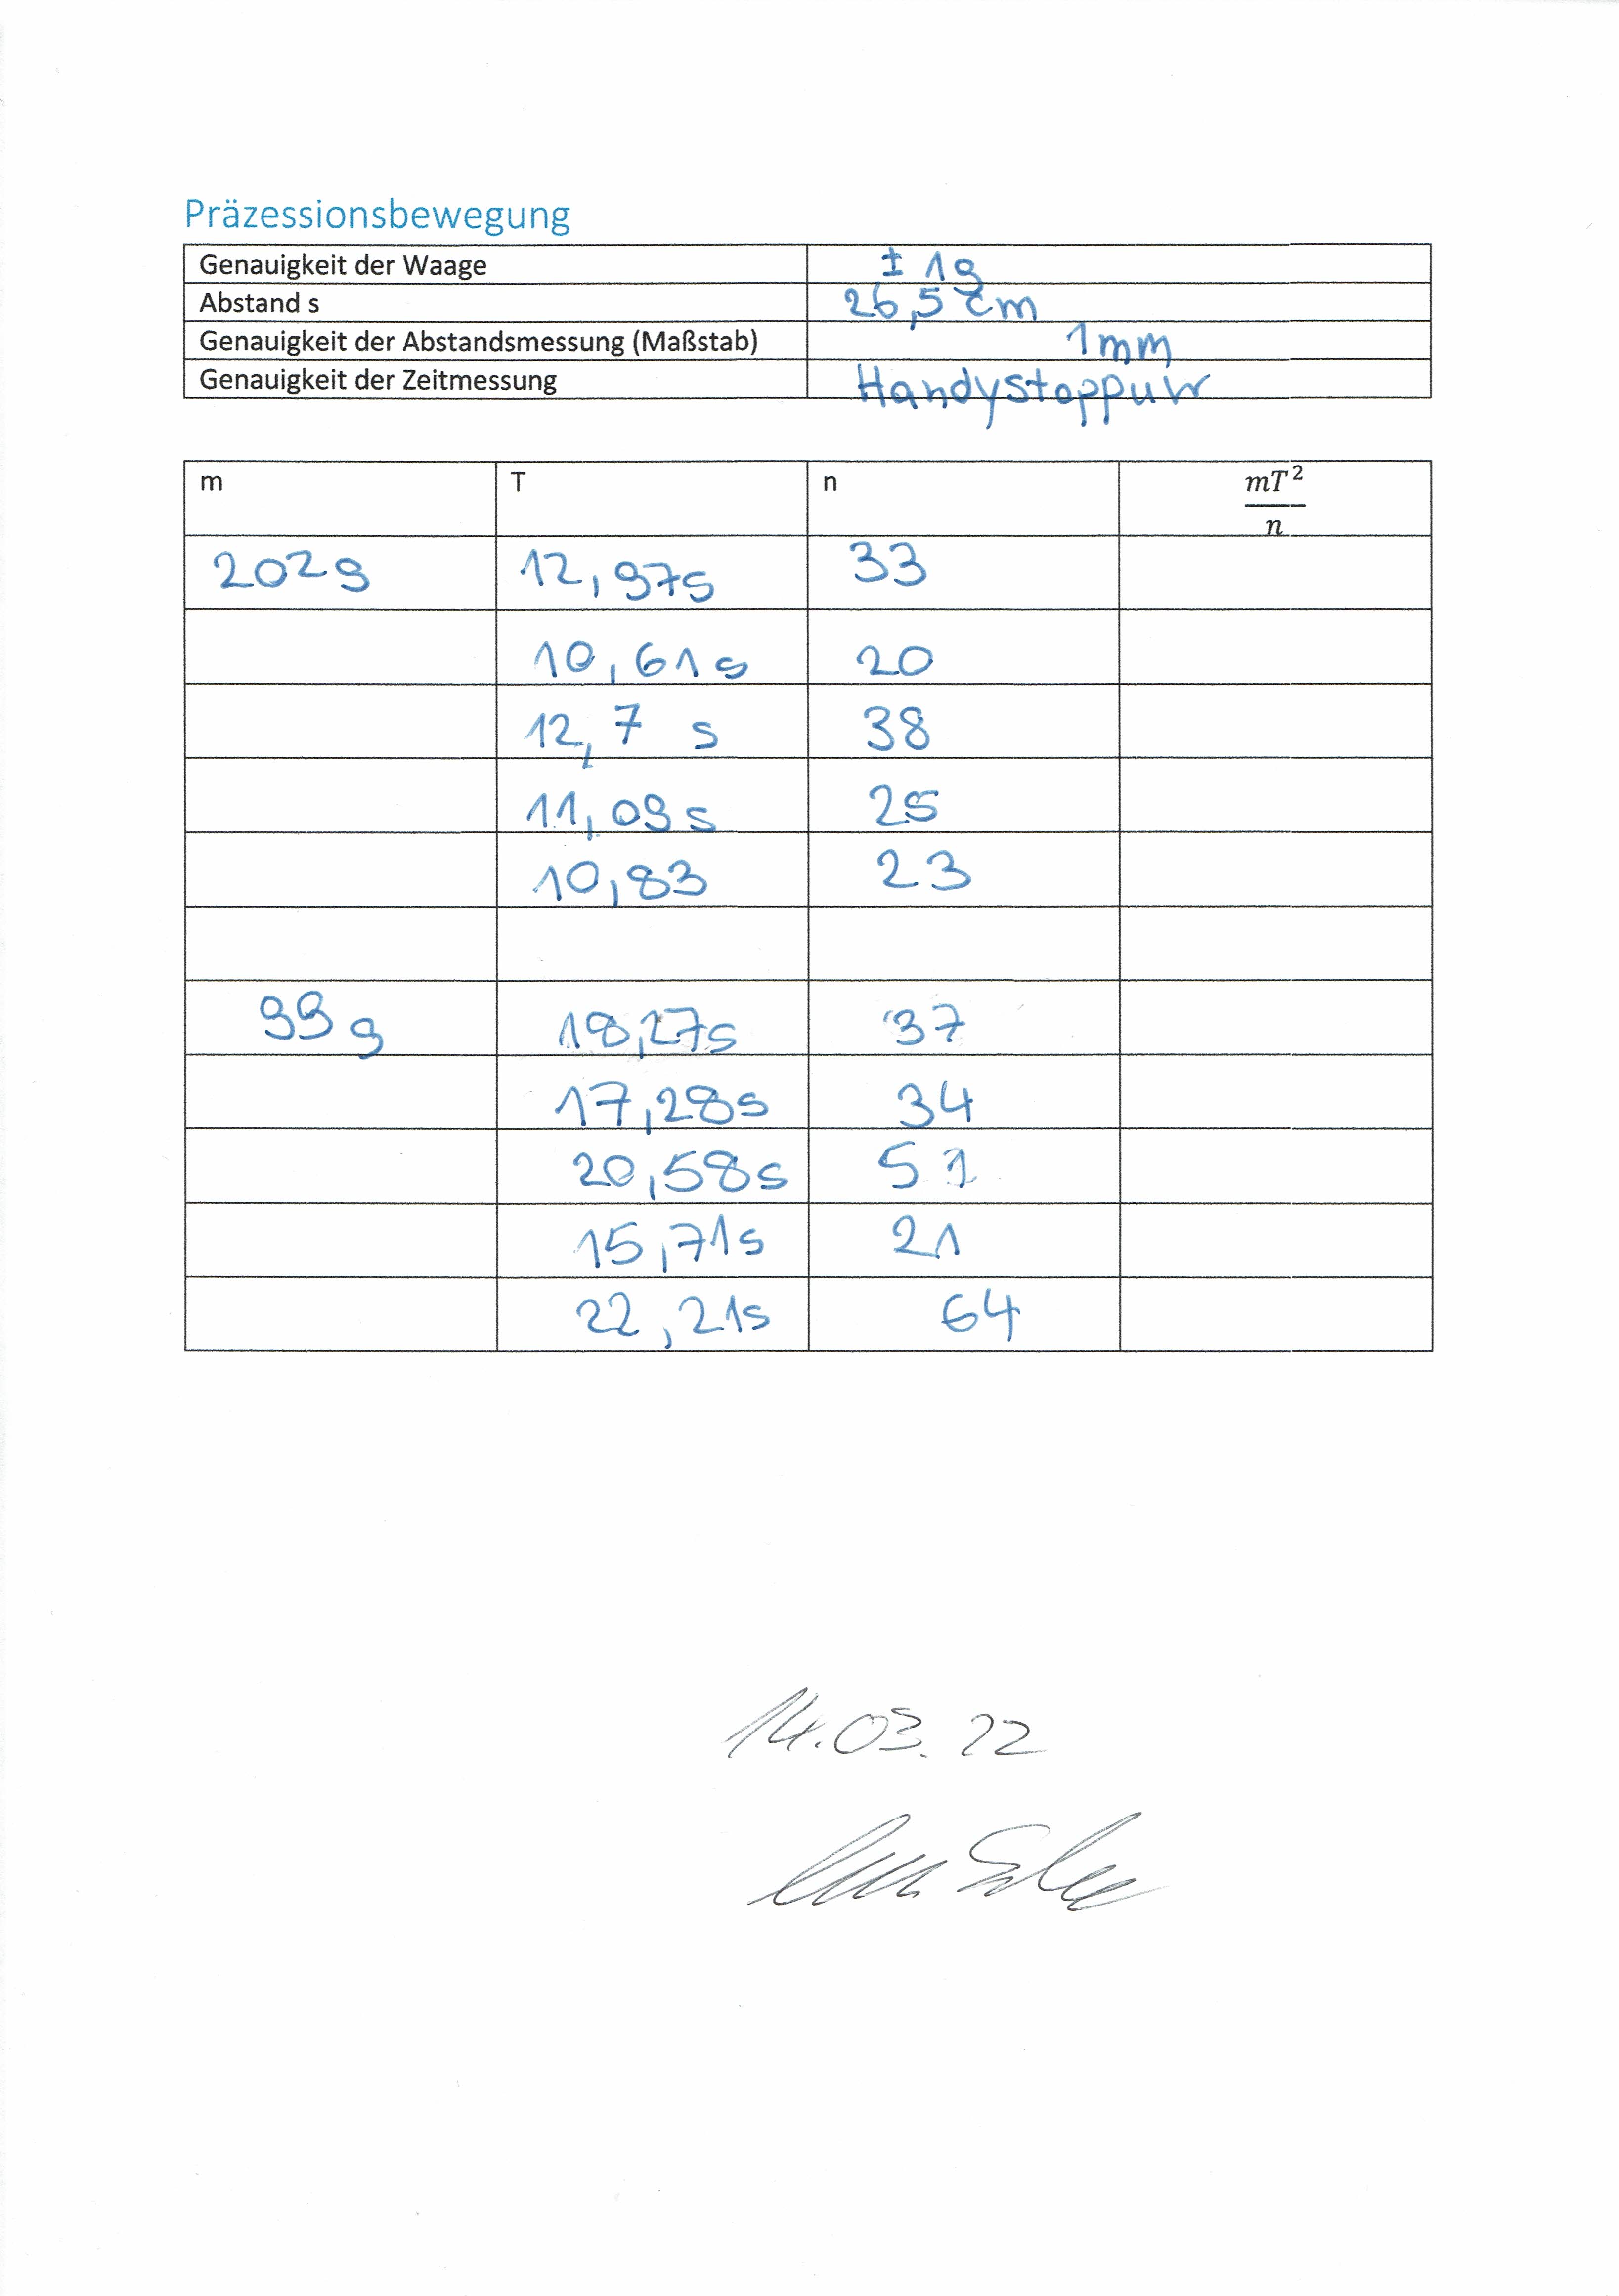 Präzessionsbewegung
Genauigkeit der Waage ± 1g
Abstand s 26,5 cm
Genauigkeit der Abstandsmessung (Maßstab) 1mm
Genauigkeit der Zeitmessung Handystoppuhr
m T n mT²/n
202g 12,97s 33
10,61s 20
12,7 s 38
11,09s 25
10,83 23
99g 18,27s 37
17,28s 34
20,58s 51
15,71s 21
22,21s 64
14.03.22